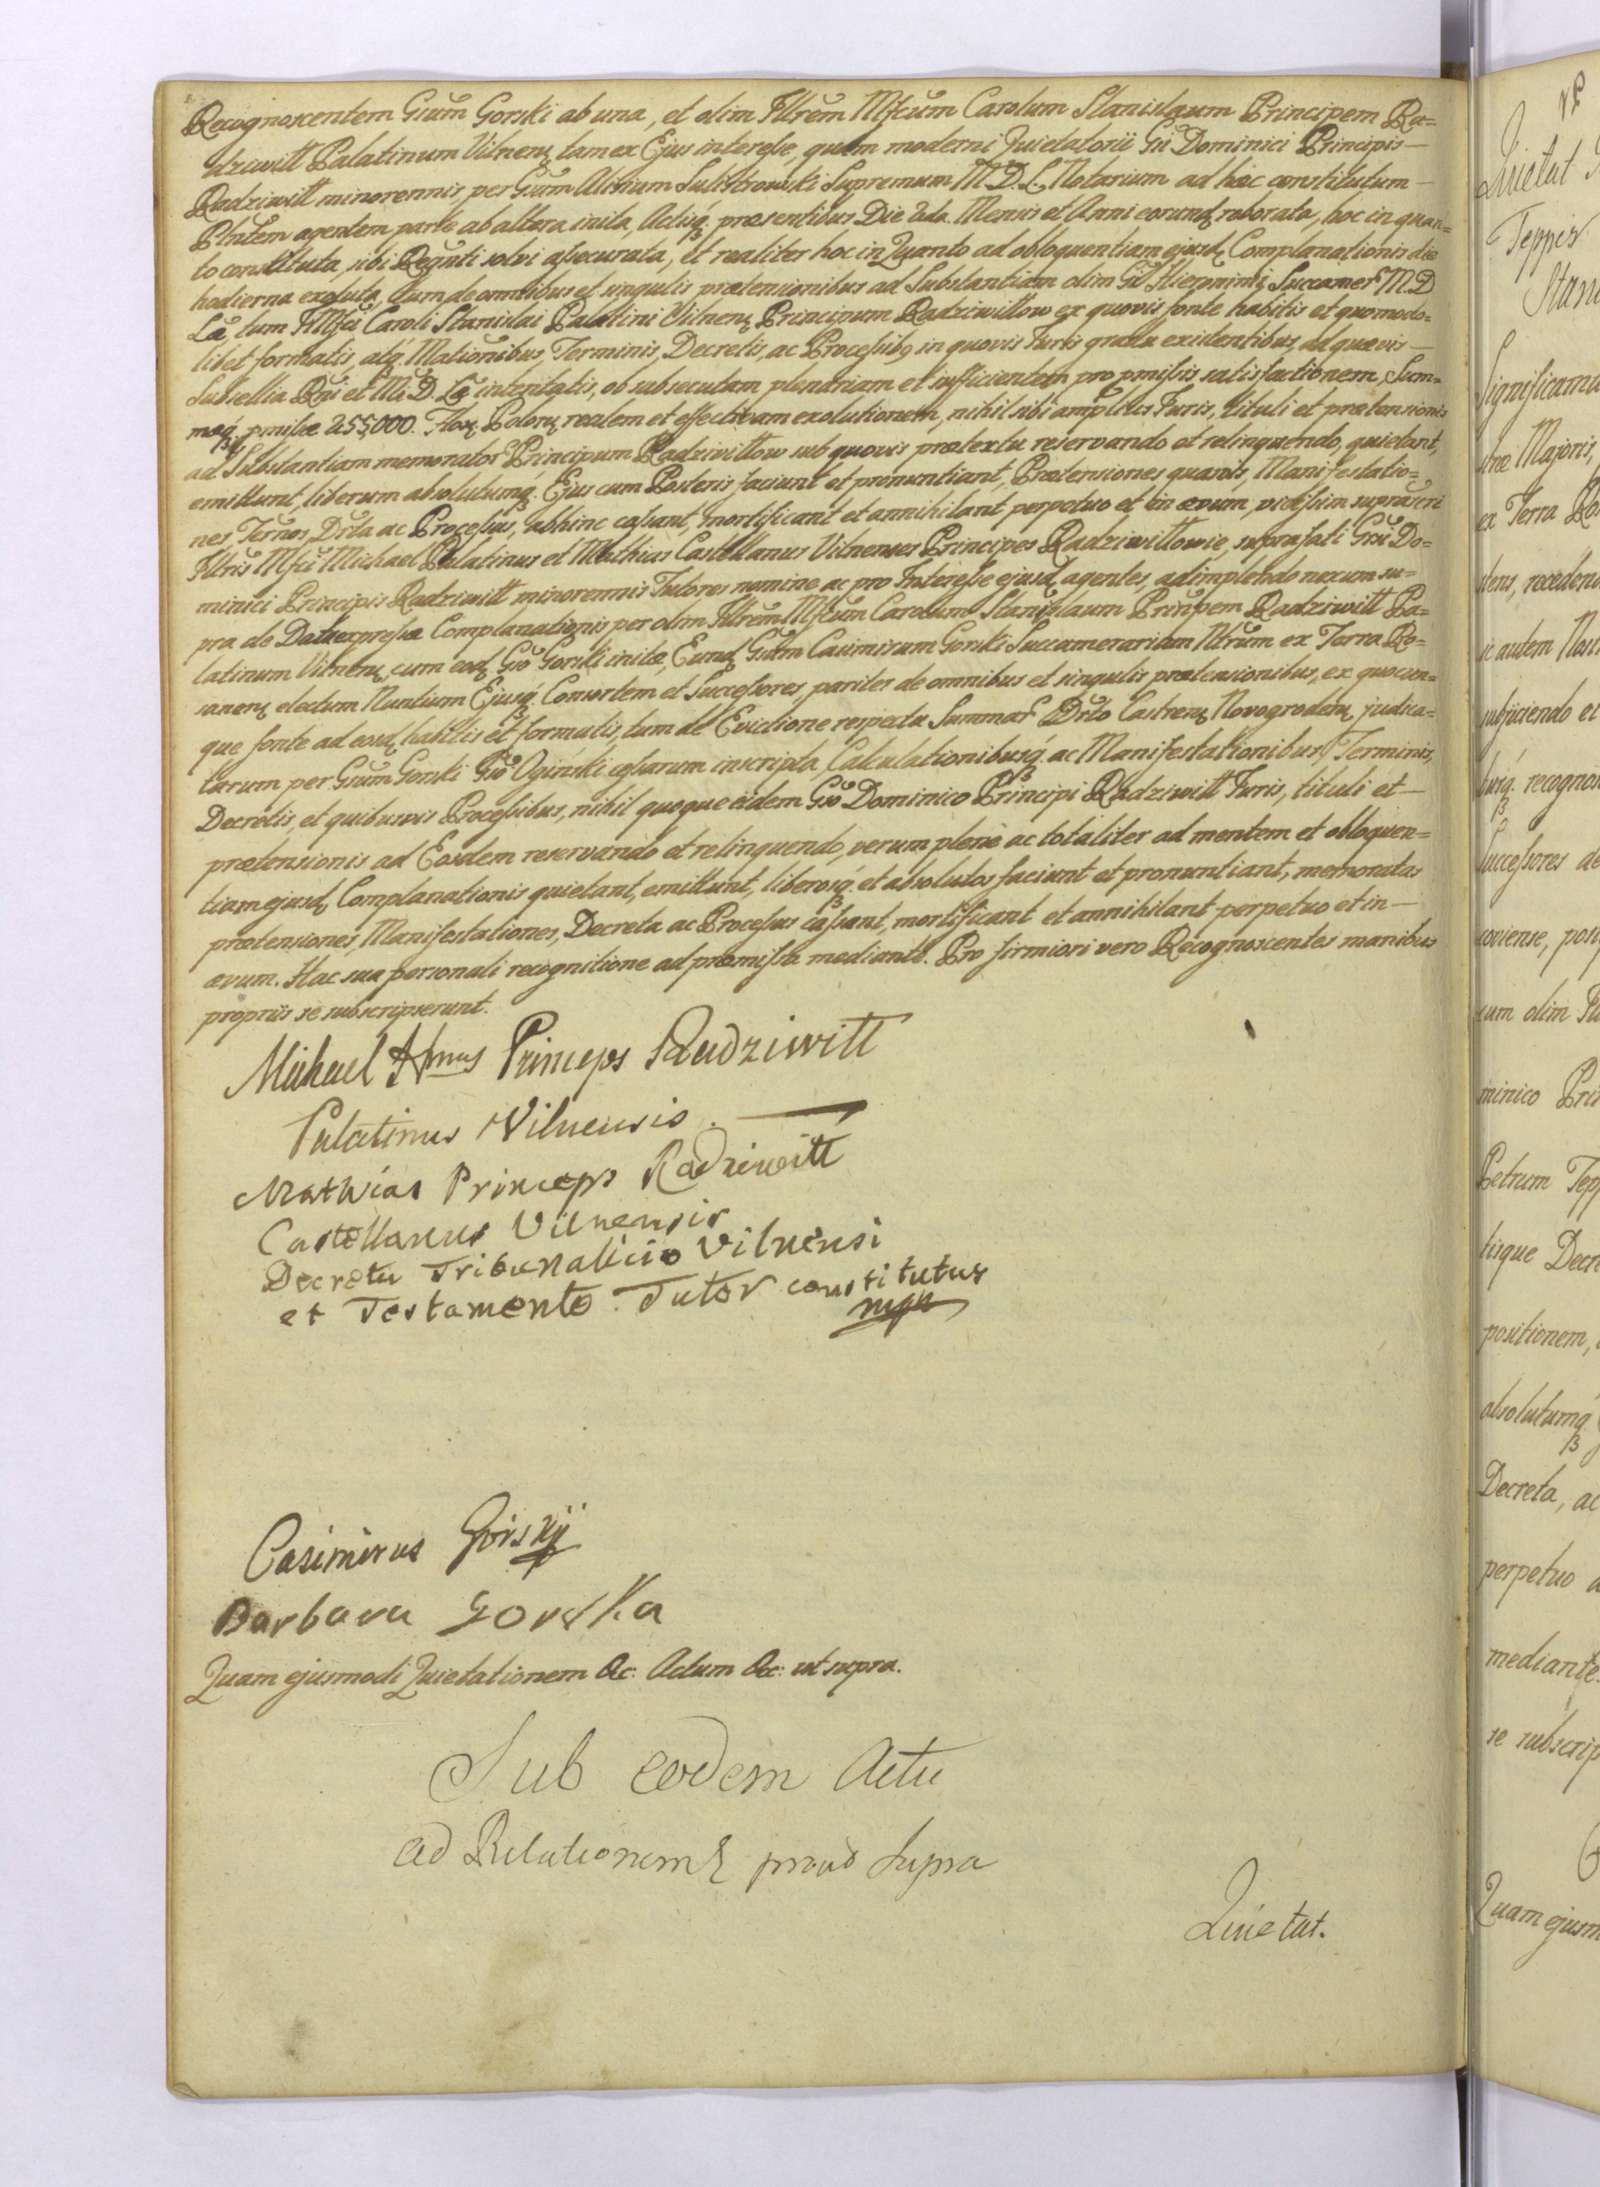 Recognoscentem Gsum Gorski ab una, et olim Illrem Mfcum Carolum Stanislaum Principem Ra=
dziwiłł Palatinum Vilnens, tam ex Ejus interesse, quam moderni Quietatorii Gsi Dominici Principis —
Radziwiłł minorennis per Gsum Sulistrowski Supremum M. D. L. Notarium ad hæc constitutum —
Plntem agentem parte ab altera inita, Actisq præsentibus Die 2da Mensis et Anni eorund roborata, hoc in quan=
to constituta, sibi Regnti solvi assecurata, et realiter hoc in Quanto ad obloquentiam ejusd Complanationis die
hodierna exoluta, tum de omnibus et singulis prætensionibus ad Substantiam olim Hieronimi Succamer M. D.
La, tum Illmfci Caroli Stanislai Palatini Vilnens Principum Radziwiłłow ex quovis fonte habitis et quomodo=
libet formatis, atq Mationibus, Terminis, Decretis, ac Processibq in quovis Juris gradu existentibus, ad quævis —
Subsellia Rni et M. D. La intentatis, ob subsecutam plenariam et sufficientem pro pmissis satisfactionem, Sum=
mæq pmissæ 255,000. Flor Polon realem et effectivam exolutionem, nihil sibi amplius Juris, tituli et prætensionis
ad Substantiam memorator Principum Radziwiłłow sub quovis prætextu reservando et relinquendo, quietant,
emittunt, liberum absolutumq Ejus cum Posteris faciunt et pronuntiant, Prætensiones quasvis, Manifestatio=
nes, Ternos, Drta ac Processus, abhinc cassant, mortificant et annihilant perpetuo et in ævum, vicissim suprascri
Illres Mfci Michael Palatinus et Mathias Castellanus Vilnenses Principes Radziwiłłowie, suprafati Gsi Do=
minici Principis Radziwiłł minorennis Tutores nomine ac pro Interesse ejusd agentes, adimplendo nexum su=
pra de Data expressæ Complanationis per olim Illrem Mfcum Carolum Stanislaum Principem Radziwiłł Pa=
latinum Vilnens, cum eod Gso Gorski initæ, Eund Gsum Casimirum Gorski Succamerarium Ntrum ex Terra Ro=
sanens electum Nuntium Ejusq Consortem et Successores, pariter de omnibus et singulis prætensionibus, ex quocun=
que fonte ad eosd habitis et formatis, tum de Evictione respectu Summar Drto Castrens Novogrodens judica=
tarum per Gsum Gorski Gso Oginski cessarum inscripta, Calculationibusq ac Manifestationibus, Terminis,
Decretis, et quibusvis Processibus, nihil quoque eidem Gso Dominico Principi Radziwiłł Juris, tituli et —
prætensionis ad Eosdem reservando et relinquendo, verum plene ac totaliter ad mentem et obloquen=
tiam ejusd Complanationis quietant, emittunt, liberosq et absolutos faciunt et pronuntiant, memoratas
prætensiones, Manifestationes, Decreta ac Processus cassant, mortificant et annihilant perpetuo et in —
ævum. Hac sua personali recognitione ad præmissa mediante. Pro firmiori vero Recognoscentes manibus
propriis se subscripserunt.
Michael Princeps Radziwiłł
Palatinus Vilnensis.
Mathias Princeps Radziwiłł
Castellanus Vilnensis
Decretu Tribunalicio Vilnensi
et Testamento Tutor constitutus
mpp
Casimirus Gorskij
Barbara Gorska
Quam ejusmodi Quietationem &c: Actum &c: ut supra.
Sub eodem Actu
ad Relationem prout Supra
Quietat.
Quietat
Teppers
Stani
Significamus
stræ Majoris,
ex Terra
recedend
ic autem Nost
subjiciendo et
busq recognos
Successores de
coviense, post
cum olim
minico Prin
Petrum Tepp
tisque Decre
positionem,
absolutumq
Decreta, ac
perpetuo a
mediante.
se subscrip
Quam ejusm